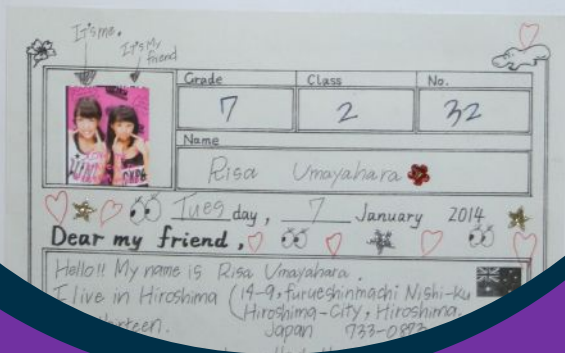 It's me.
It's My
friend
Grade
Class
No.
7
2
32
Name
Risa Umayahara
Tues day, 7 January 2014
Dear my friend,
Hello!! My name is Risa Umayahara.
I live in Hiroshima (14-9, furueshinmachi Nishi-ku
Hiroshima-City, Hiroshima,
thirteen. Japan 733-0873